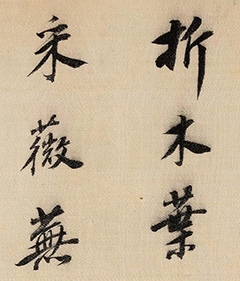 折木葉
采薇蕪